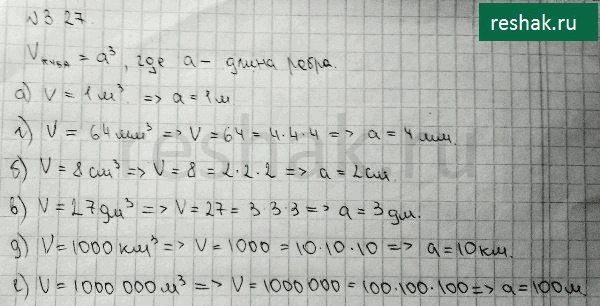 reshak.ru
№327.
Vкуба = a³, где a - длина ребра.
а) V = 1 м³ => a = 1 м
г) V = 64 мм³ => V = 64 = 4·4·4 => a = 4 мм.
б) V = 8 см³ => V = 8 = 2·2·2 => a = 2 см
в) V = 27 дм³ => V = 27 = 3·3·3 => a = 3 дм.
д) V = 1000 км³ => V = 1000 = 10·10·10 => a = 10 км.
е) V = 1000 000 м³ => V = 1000 000 = 100·100·100 => a = 100 м
reshak.ru